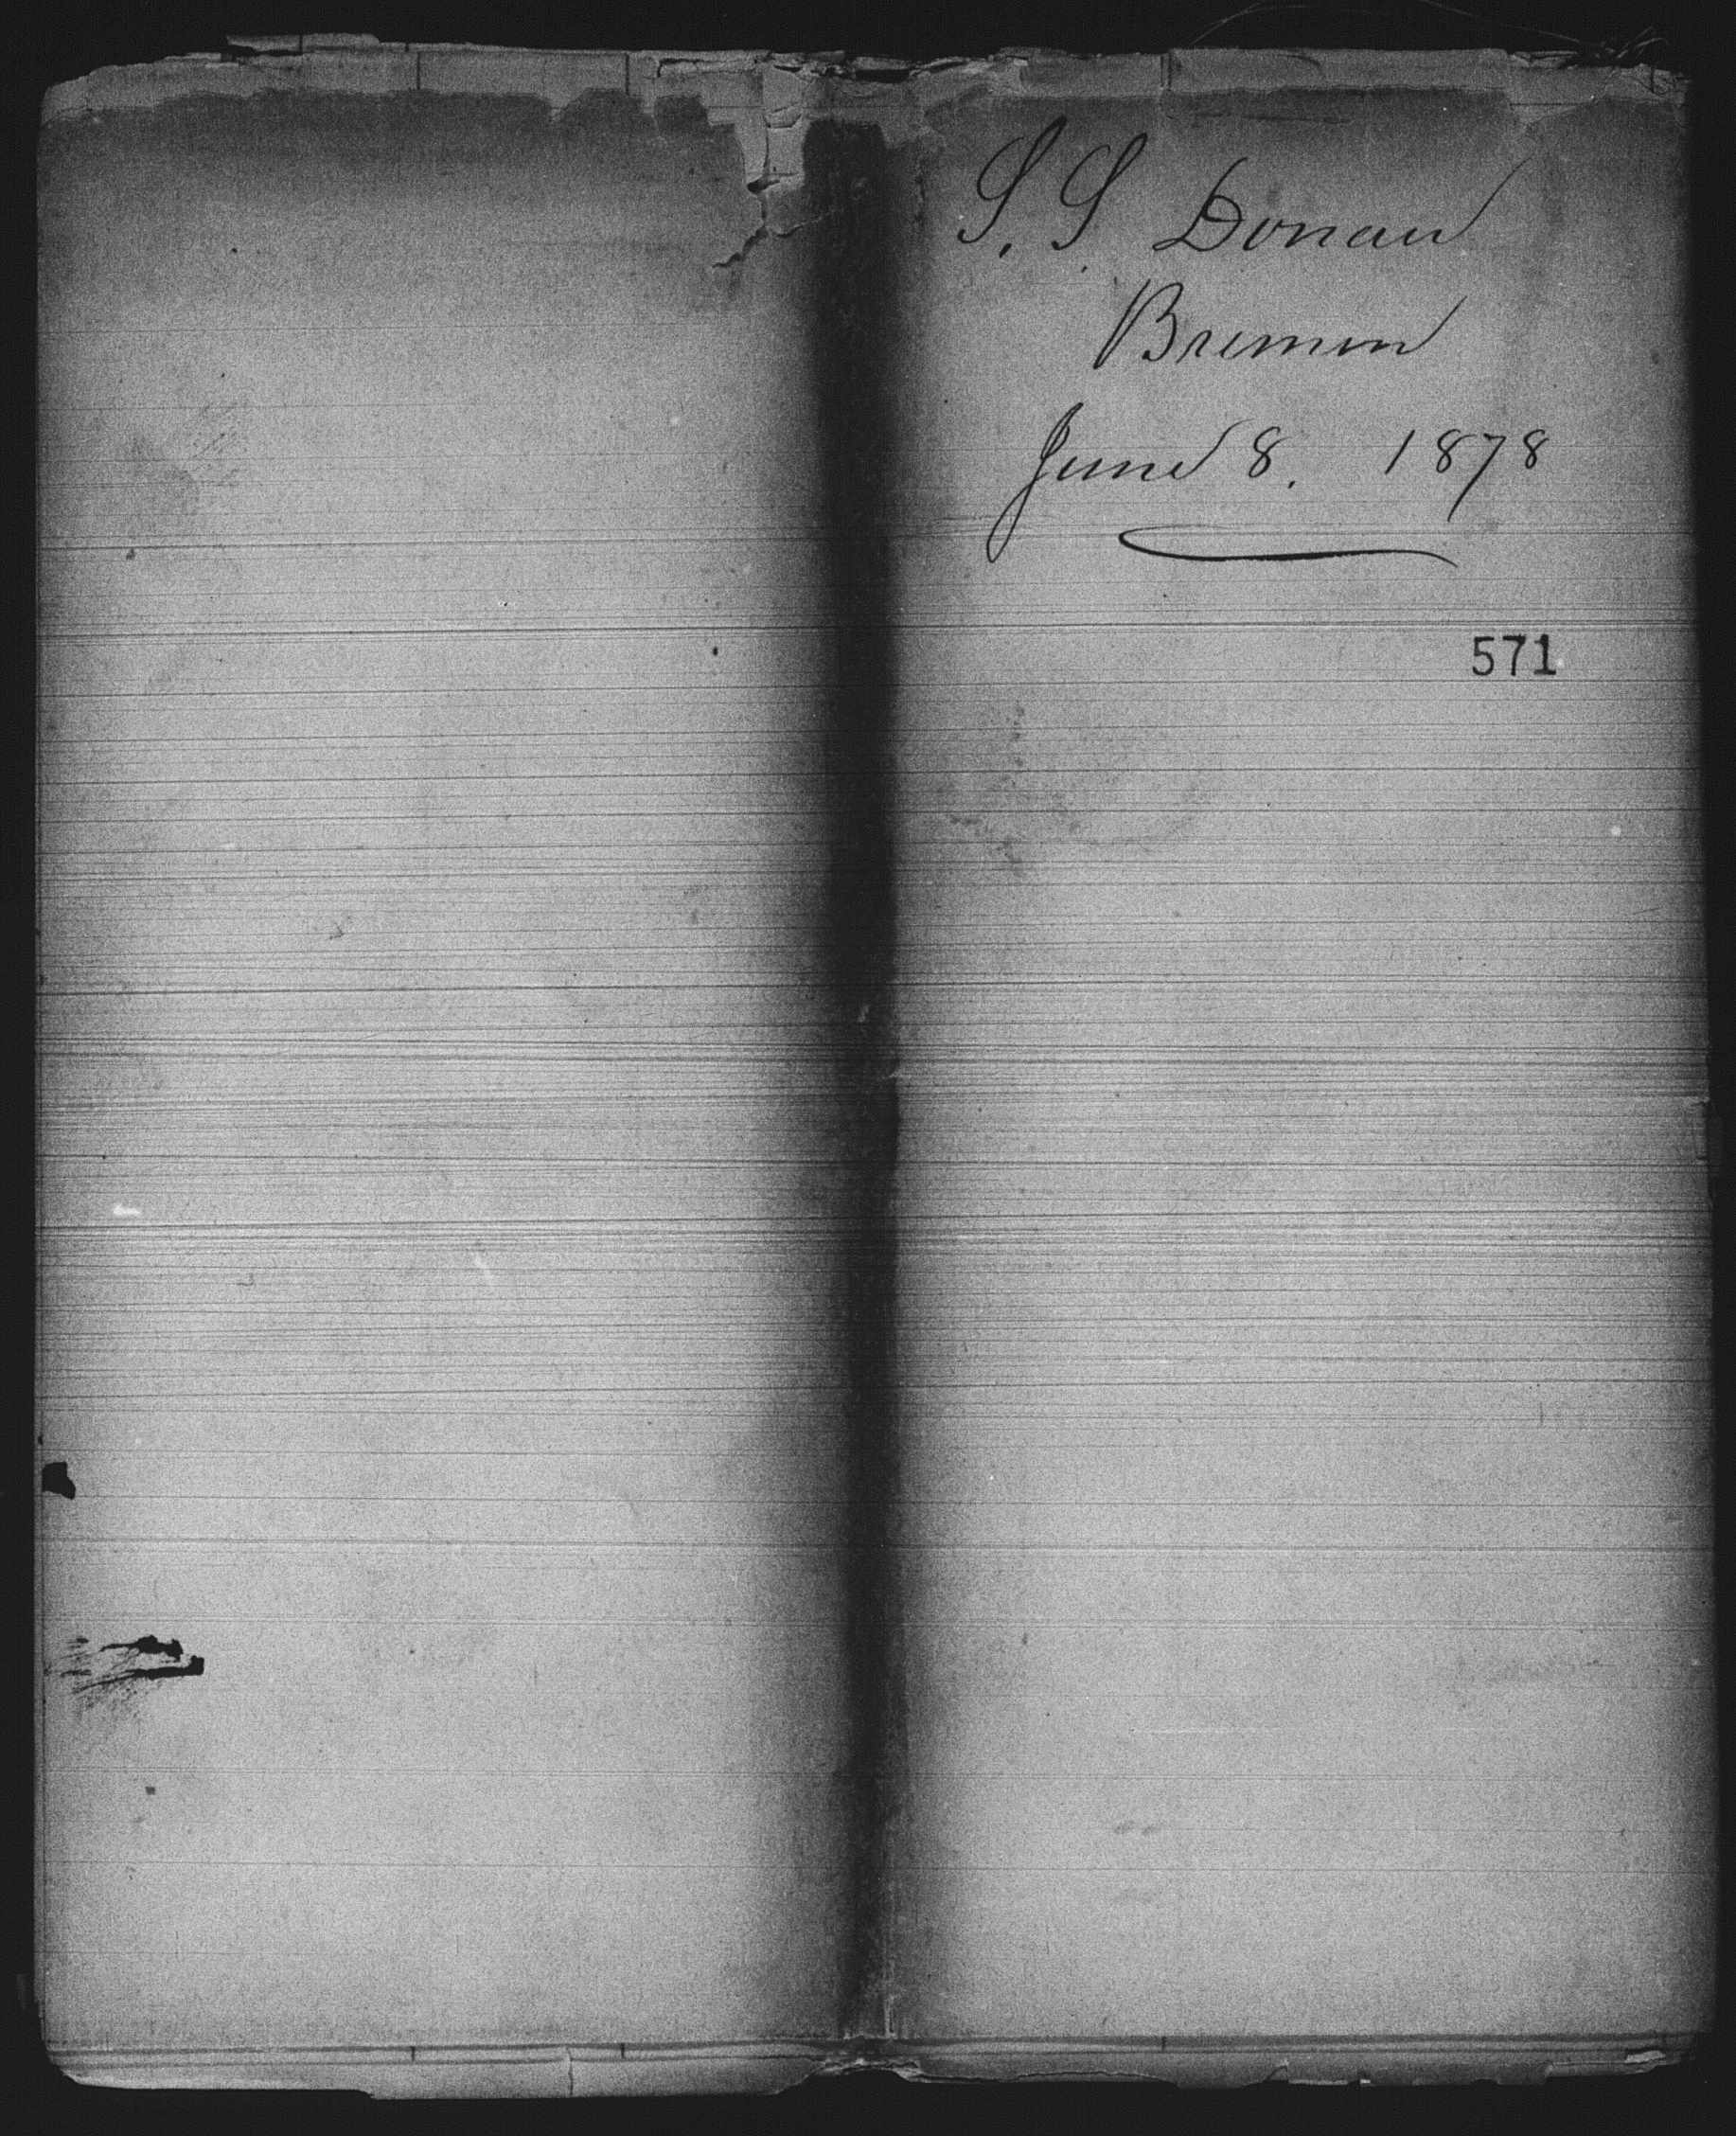 S. S. Donau
Bremen
June 8. 1878
571